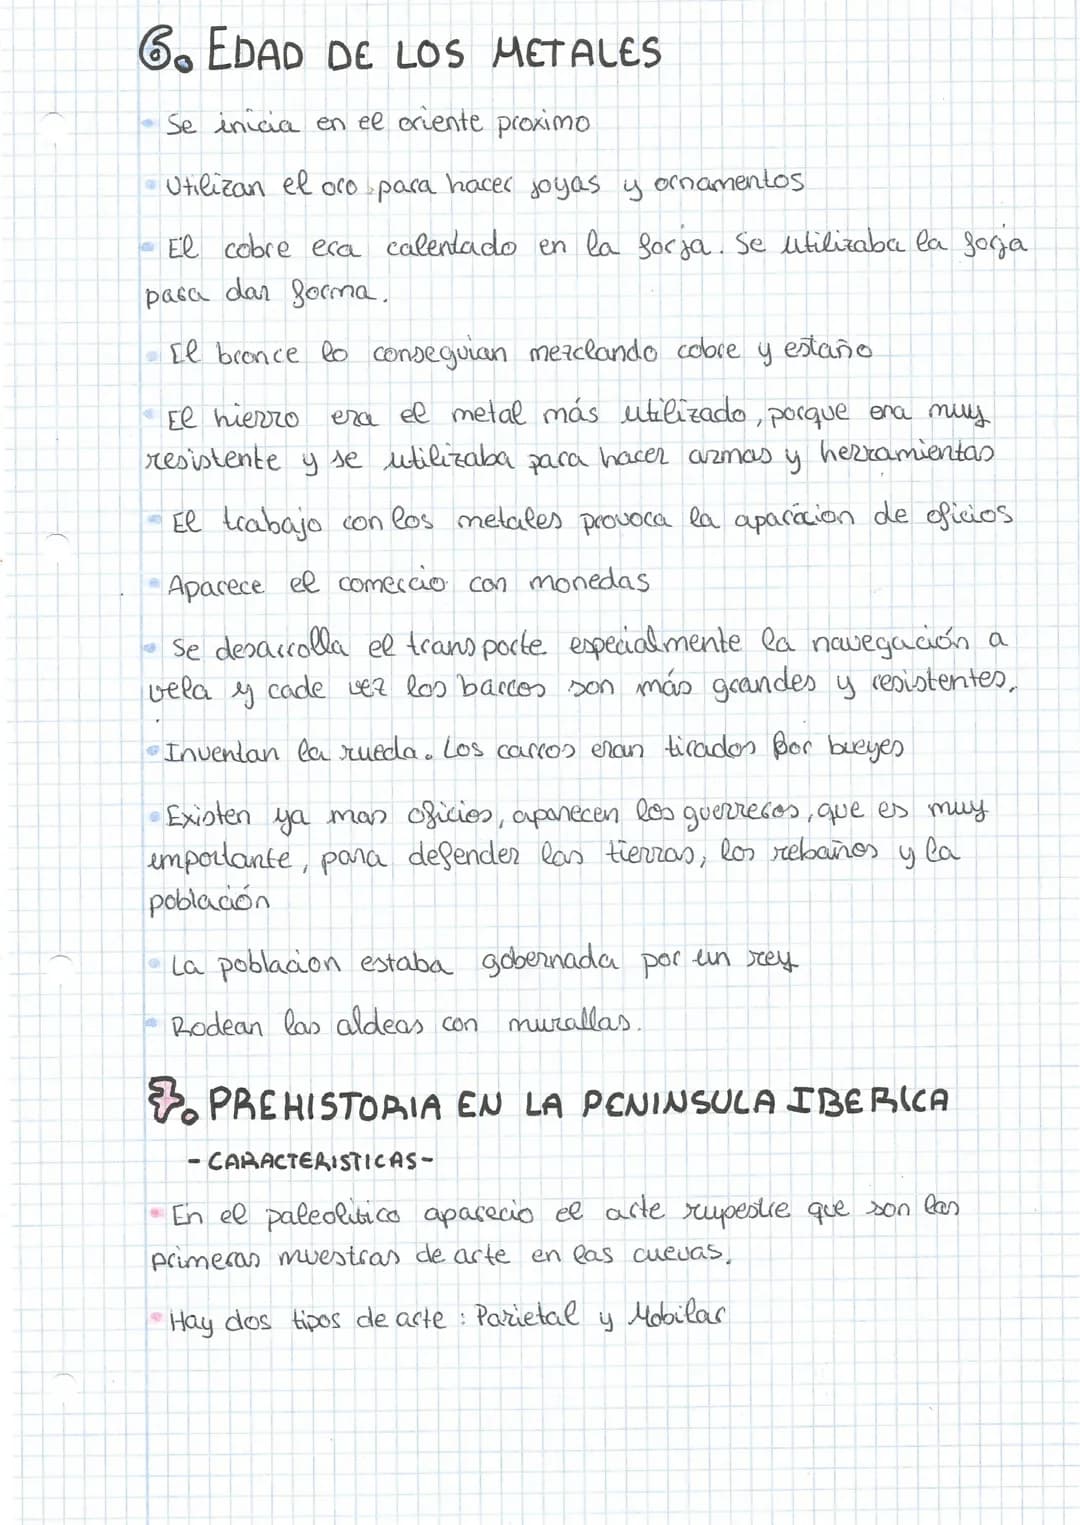 6. EDAD DE LOS METALES
Se inicia en el oriente proximo
Utilizan el oro para hacer joyas y ornamentos
El cobre era calentado en la forja. Se utilizaba la forja
para dar forma.
El bronce lo conseguian mezclando cobre y estaño
El hierro era el metal más utilizado, porque era muy
resistente y se utilizaba para hacer armas y herramientas
El trabajo con los metales provoca la aparacion de oficios
Aparece el comercio con monedas
Se desarrolla el transporte especialmente la navegación a
vela y cade vez los barcos son más grandes y resistentes.
Inventan la rueda. Los carros eran tirados por bueyes
Existen ya mas oficios, aparecen los guerreros, que es muy
importante, para defender las tierras, los rebaños y la
población
La poblacion estaba gobernada por un rey
Rodean las aldeas con murallas.
7. PREHISTORIA EN LA PENINSULA IBERICA
- CARACTERISTICAS -
En el paleolitico aparecio el arte rupestre que son las
primeras muestras de arte en las cuevas.
Hay dos tipos de arte : Parietal y Mobilar